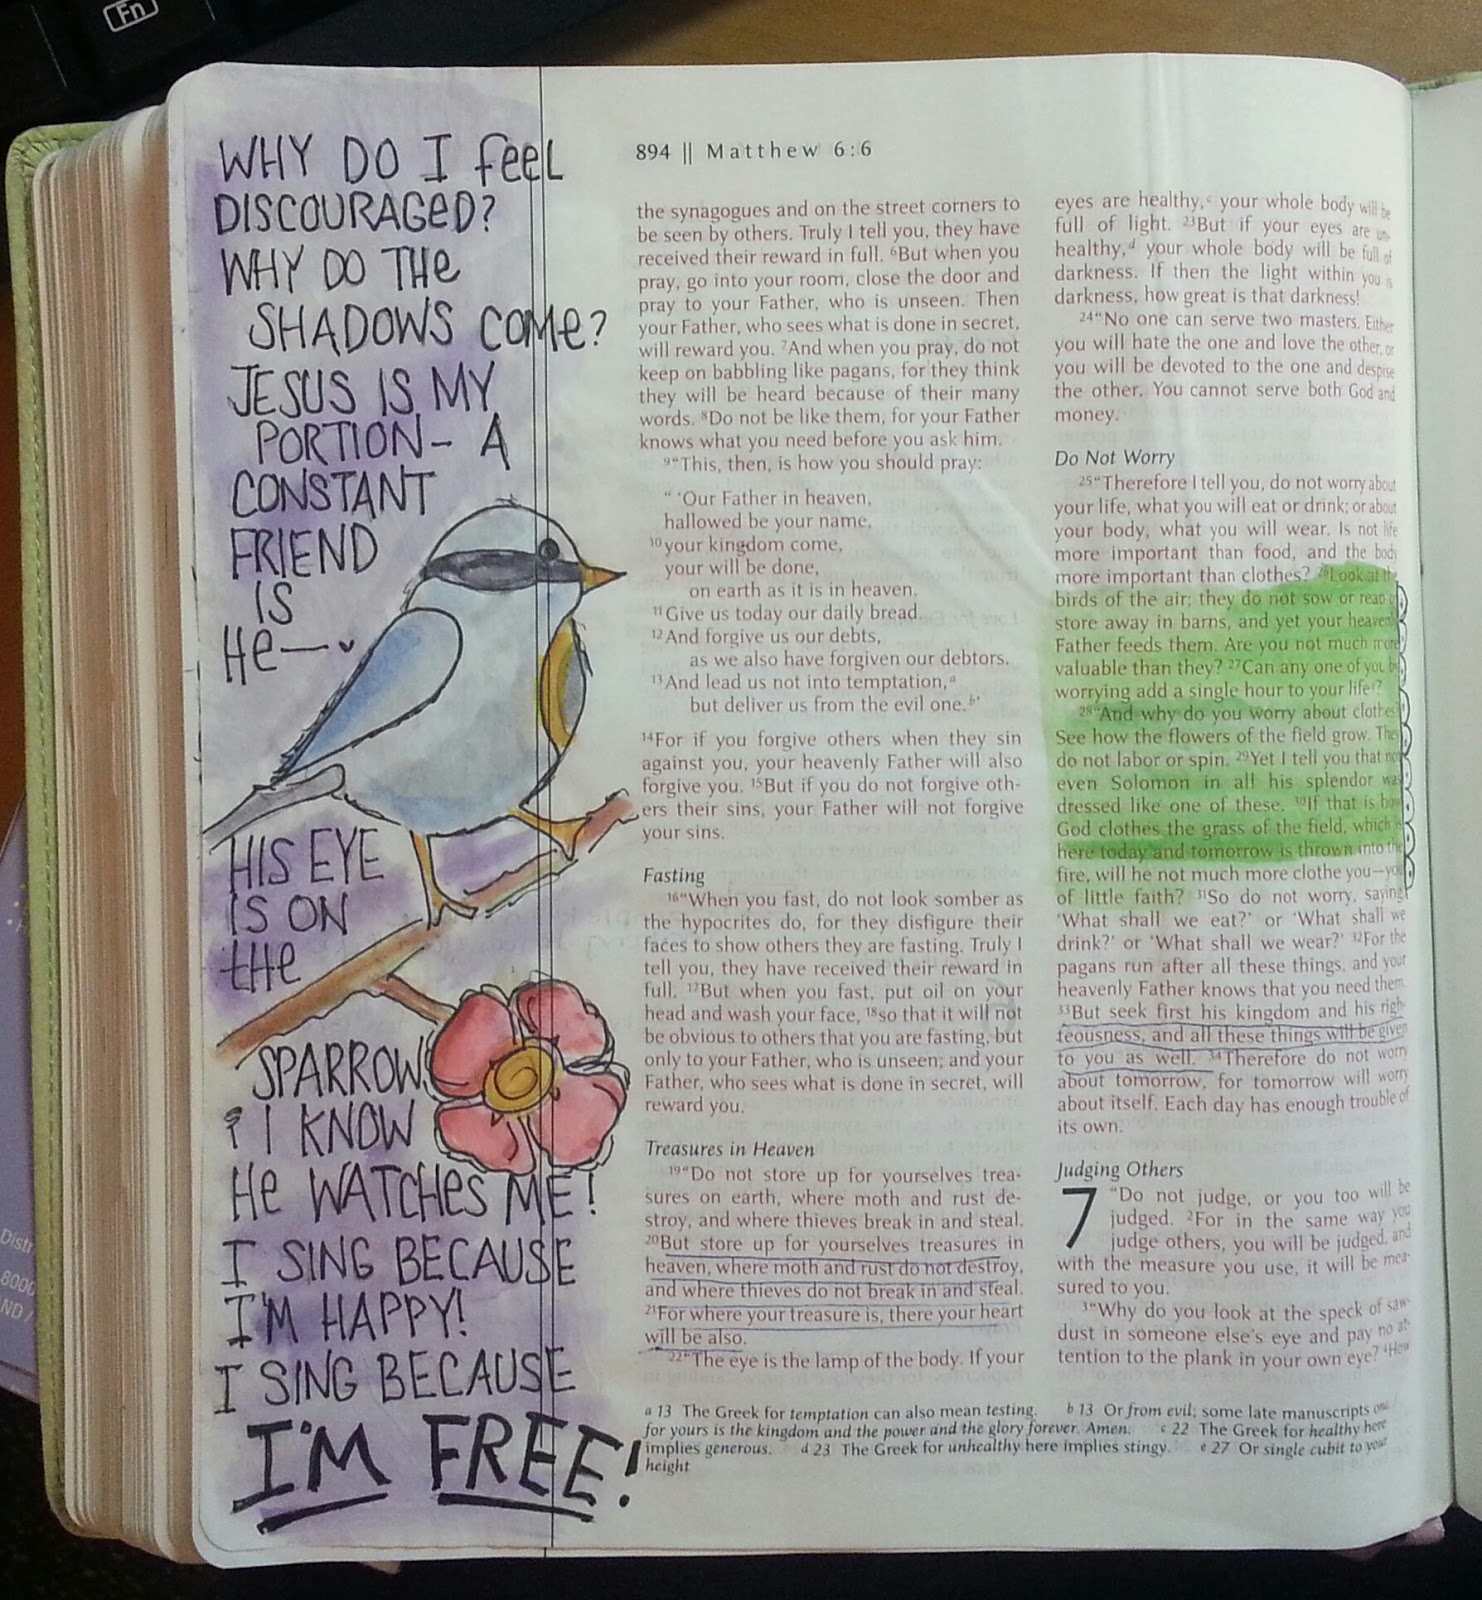 Fn
WHY DO I feeL
DISCOURAGeD?
WHY DO THe
SHADOWS COMe?
JESUS IS MY
PORTION – A
CONSTANT
FRIEND
IS
He —
HIS EYE
IS ON
tHe
SPARROW
& I KNOW
He WATCHeS ME!
I SING BECAUSE
I'M HAPPY!
I SING BECAUSE
I'M FREE!
894 || Matthew 6:6
the synagogues and on the street corners to
be seen by others. Truly I tell you, they have
received their reward in full. 6But when you
pray, go into your room, close the door and
pray to your Father, who is unseen. Then
your Father, who sees what is done in secret,
will reward you. 7And when you pray, do not
keep on babbling like pagans, for they think
they will be heard because of their many
words. 8Do not be like them, for your Father
knows what you need before you ask him.
9“This, then, is how you should pray:
“ ‘Our Father in heaven,
hallowed be your name,
10your kingdom come,
your will be done,
on earth as it is in heaven.
11Give us today our daily bread.
12And forgive us our debts,
as we also have forgiven our debtors.
13And lead us not into temptation,a
but deliver us from the evil one.b’
14For if you forgive others when they sin
against you, your heavenly Father will also
forgive you. 15But if you do not forgive oth-
ers their sins, your Father will not forgive
your sins.
Fasting
16“When you fast, do not look somber as
the hypocrites do, for they disfigure their
faces to show others they are fasting. Truly I
tell you, they have received their reward in
full. 17But when you fast, put oil on your
head and wash your face, 18so that it will not
be obvious to others that you are fasting, but
only to your Father, who is unseen; and your
Father, who sees what is done in secret, will
reward you.
Treasures in Heaven
19“Do not store up for yourselves trea-
sures on earth, where moth and rust de-
stroy, and where thieves break in and steal.
20But store up for yourselves treasures in
heaven, where moth and rust do not destroy,
and where thieves do not break in and steal.
21For where your treasure is, there your heart
will be also.
22“The eye is the lamp of the body. If your
eyes are healthy,c your whole body will be
full of light. 23But if your eyes are un-
healthy,d your whole body will be full of
darkness. If then the light within you is
darkness, how great is that darkness!
24“No one can serve two masters. Either
you will hate the one and love the other, or
you will be devoted to the one and despise
the other. You cannot serve both God and
money.
Do Not Worry
25“Therefore I tell you, do not worry about
your life, what you will eat or drink; or about
your body, what you will wear. Is not life
more important than food, and the body
more important than clothes? 26Look at the
birds of the air; they do not sow or reap or
store away in barns, and yet your heavenly
Father feeds them. Are you not much more
valuable than they? 27Can any one of you by
worrying add a single hour to your lifee?
28“And why do you worry about clothes?
See how the flowers of the field grow. They
do not labor or spin. 29Yet I tell you that not
even Solomon in all his splendor was
dressed like one of these. 30If that is how
God clothes the grass of the field, which is
here today and tomorrow is thrown into the
fire, will he not much more clothe you—you
of little faith? 31So do not worry, saying,
‘What shall we eat?’ or ‘What shall we
drink?’ or ‘What shall we wear?’ 32For the
pagans run after all these things, and your
heavenly Father knows that you need them.
33But seek first his kingdom and his righ-
teousness, and all these things will be given
to you as well. 34Therefore do not worry
about tomorrow, for tomorrow will worry
about itself. Each day has enough trouble of
its own.
Judging Others
7 “Do not judge, or you too will be
judged. 2For in the same way you
judge others, you will be judged, and
with the measure you use, it will be mea-
sured to you.
3“Why do you look at the speck of saw-
dust in someone else's eye and pay no at-
tention to the plank in your own eye? 4How
a 13 The Greek for temptation can also mean testing. b 13 Or from evil; some late manuscripts one,
for yours is the kingdom and the power and the glory forever. Amen. c 22 The Greek for healthy here
implies generous. d 23 The Greek for unhealthy here implies stingy. e 27 Or single cubit to your
height
Distr
8000
ND /